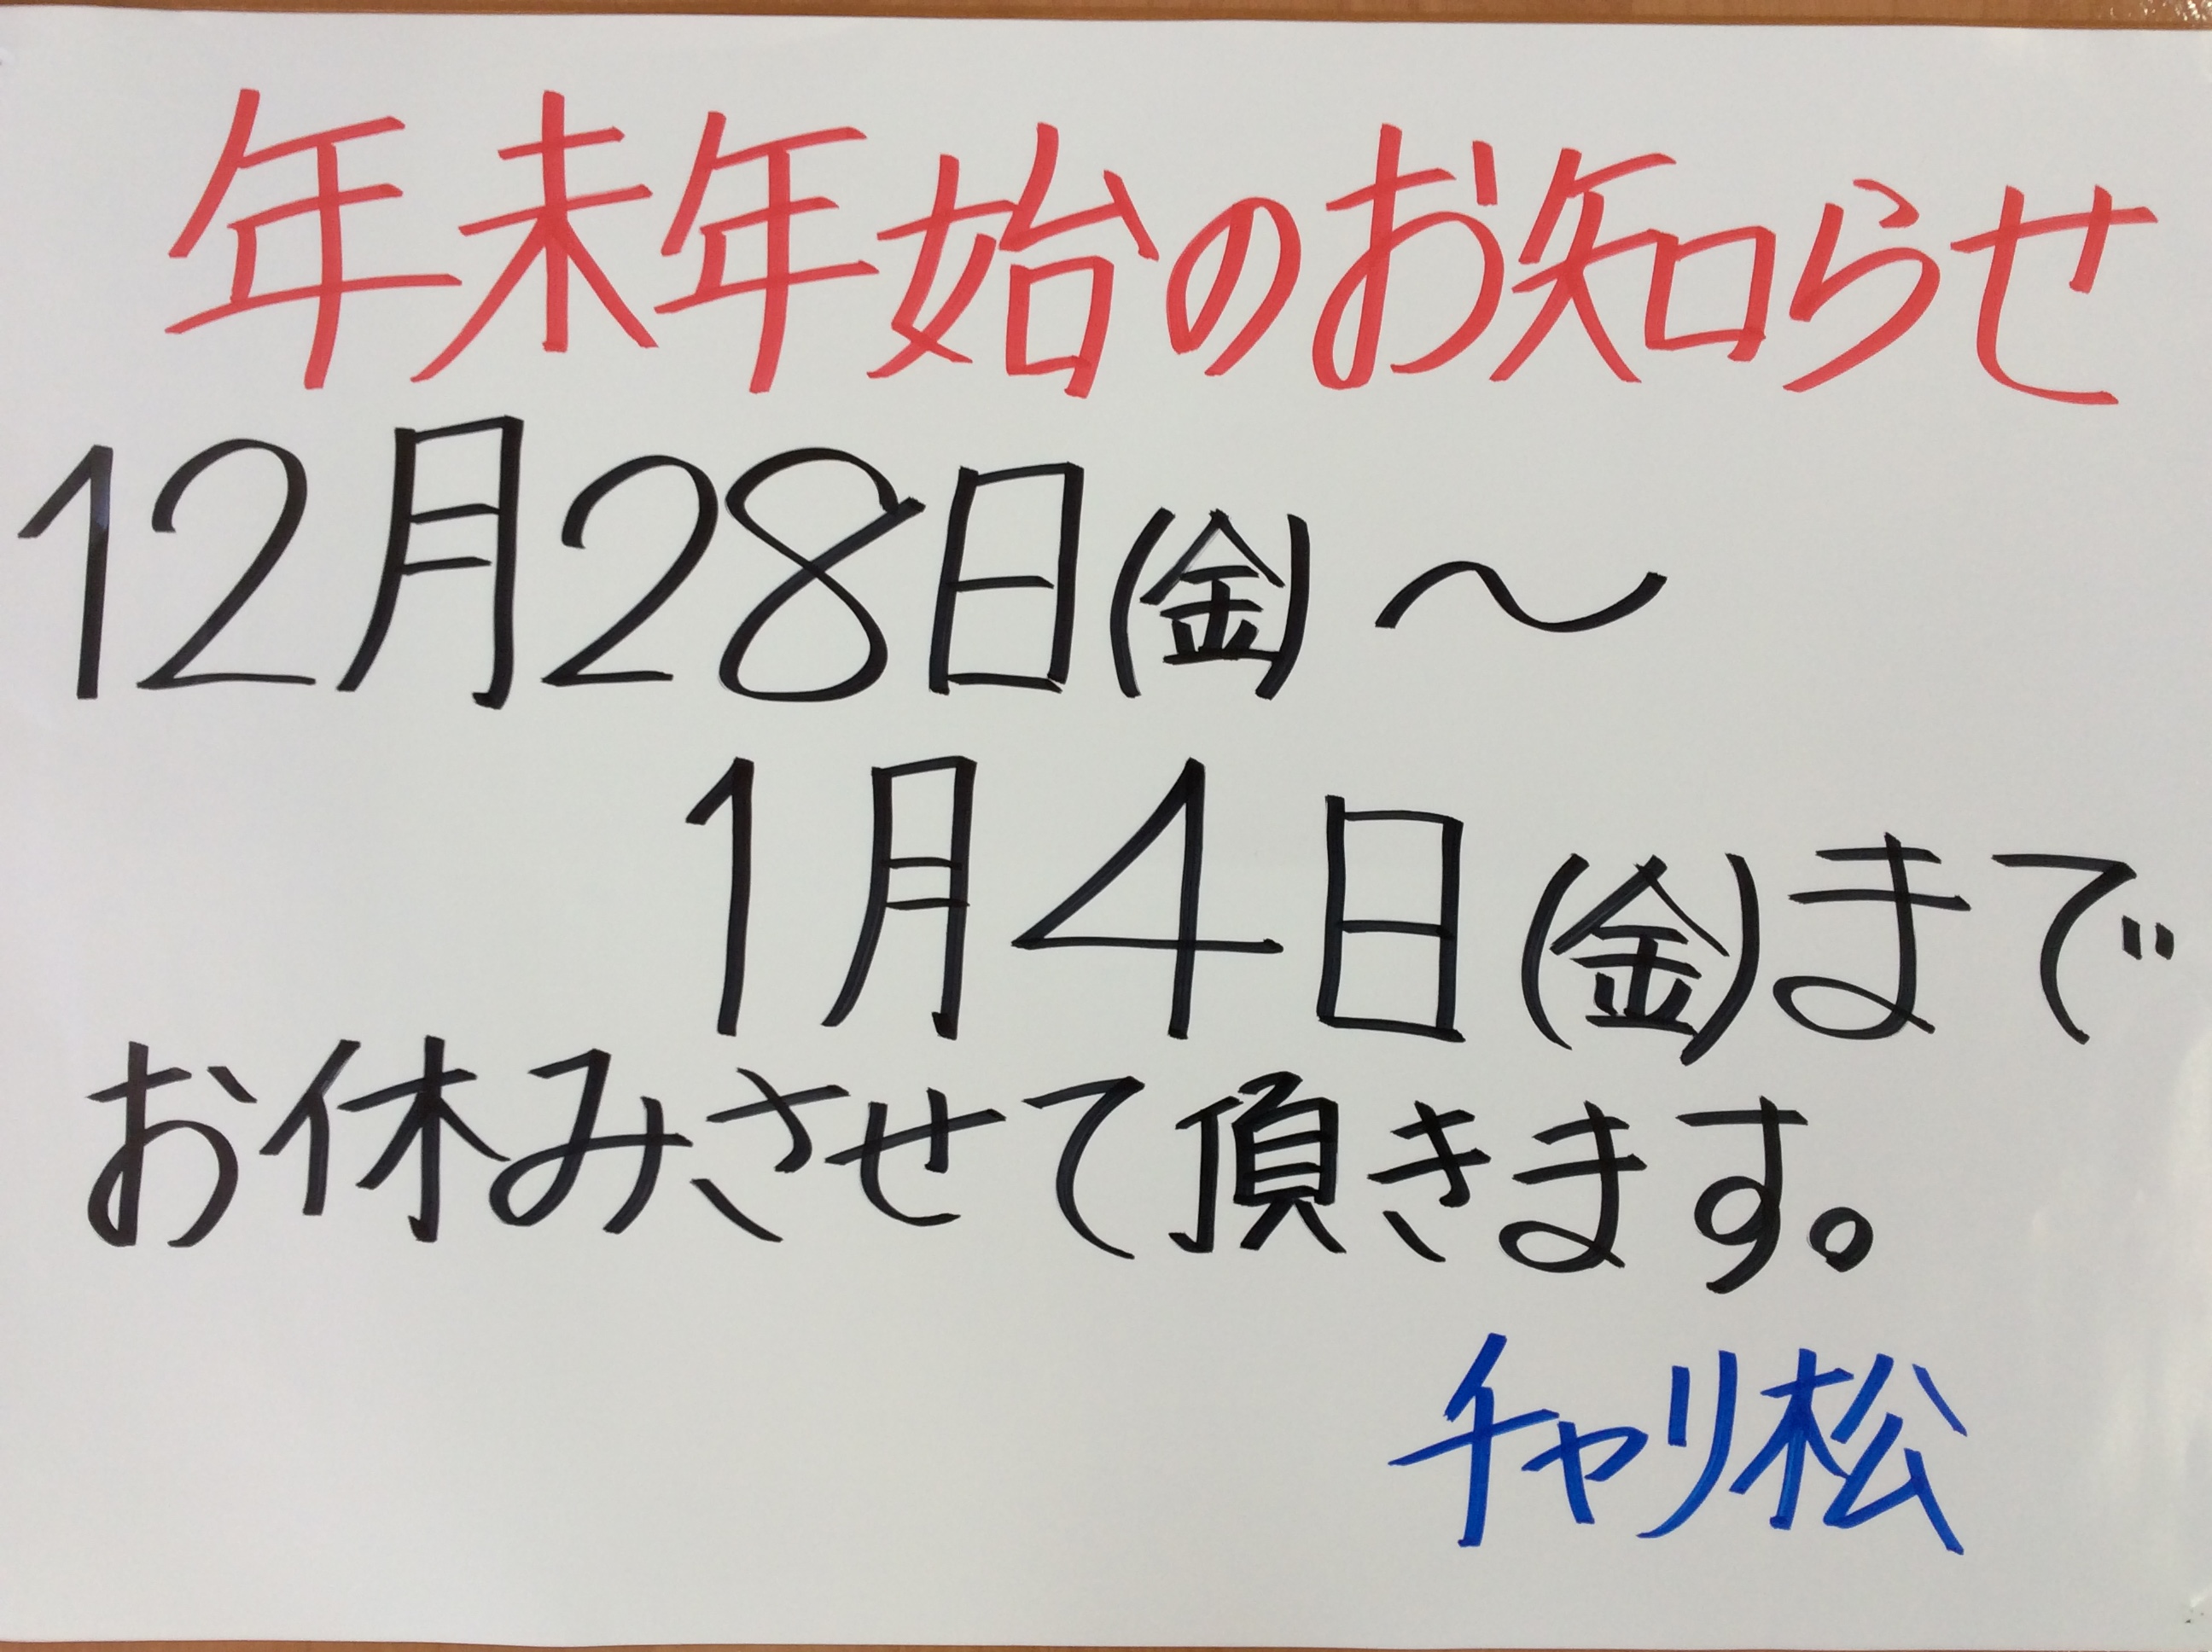 年末年始のお知らせ
12月28日(金)～
1月4日(金)まで
お休みさせて頂きます。
チャリ松